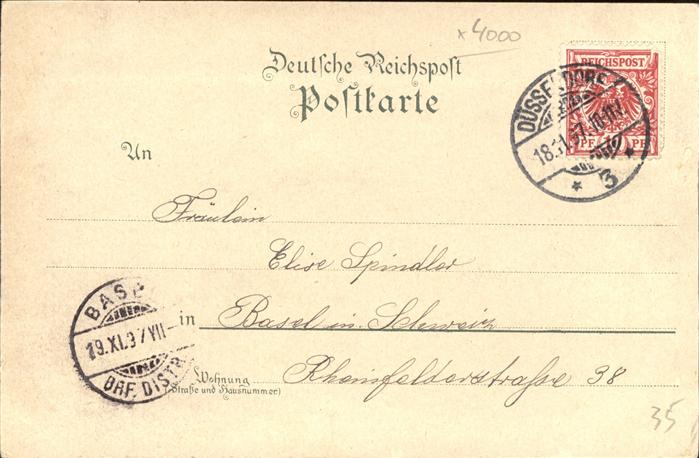 x 4000
Deutsche Reichspost
Postkarte
REICHSPOST
PF 10 PF
DÜSSELDORF
18.11.97. 10-11V.
* 3 *
An
Fräulein
Elise Spindler
in Basel in Schweiz
Wohnung
(Straße und Hausnummer)
Rheinfelderstraße 38
BAS
19.XI.97 VII
BRF. DISTR
35